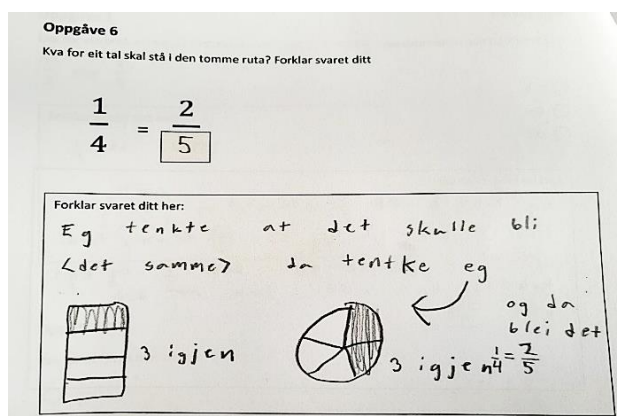 Oppgåve 6
Kva for eit tal skal stå i den tomme ruta? Forklar svaret ditt
1/4 = 2/5
Forklar svaret ditt her:
Eg tenkte at det skulle bli
<det samme> da tentke eg
3 igjen
3 igjen
og da
blei det
1/4 = 2/5